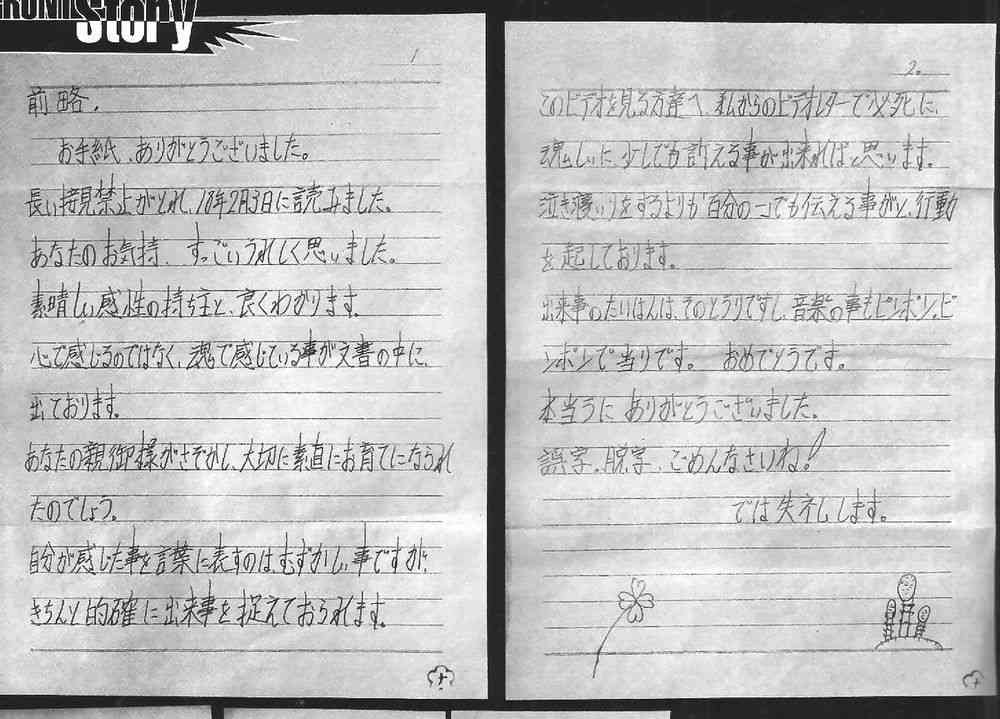 FRONT Story
1
前略、
お手紙、ありがとうございました。
長い接見禁止がとれ、18年2月3日に読みました。
あなたのお気持、すっごいうれしく思いました。
素晴しい感性の持ち主と、良くわかります。
心で感じるのではなく、魂で感じている事が文書の中に、
出ております。
あなたの親御様がさぞかし、大切に素直にお育てになられ
たのでしょう。
自分が感じた事を言葉に表すのは、むずかしい事ですが、
きちんと的確に出来事を捉えておられます。
2.
このビデオを見る方達へ 私からのビデオレターで必死に、
魂しいに、少しでも訴える事が出来ればと思います。
泣き寝いりをするよりも“百分の一”でも伝える事がと、行動
を起しております。
出来事のたいはんは、そのとうりですし、音楽の事もピンポン、ピ
ンポンで当りです。 おめでとうです。
本当うに ありがとうございました。
誤字、脱字、ごめんなさいね!
では失礼します。